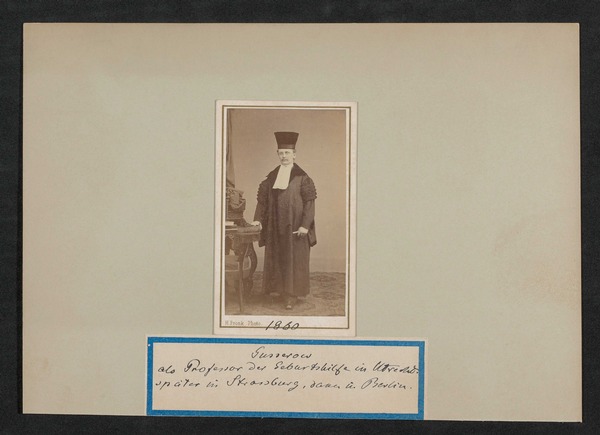 Photo.
1860
Gusserow
als Professor der Geburtshilfe in Utrecht.
später in Strassburg, dann in Berlin.